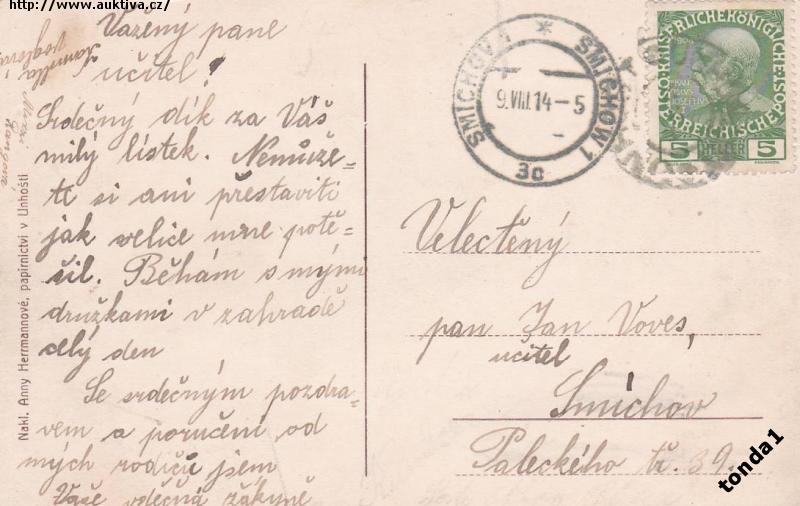 http://www.auktiva.cz/
Vážený pane
učiteli!
Srdečný dík za Váš
milý lístek. Nemůže-
te si ani přestaviti
jak velice mne potě-
šil. Běhám s mými
družkami v zahradě
celý den
Se srdečným pozdra-
vem a poručení od
mých rodičů jsem
Vaše vděčná žákyně
Nakl. Anny Herrmannové, papírnictví v Unhošti
SMÍCHOV 1 * SMICHOW 1
9.VIII.14-5
3c
KAISERLICHE KÖNIGLICHE
ÖSTERREICHISCHE POST
5 HELLER 5
Velectěný
pan Jan Voves,
učitel
Smíchov
Palackého tř. 39.
tonda1